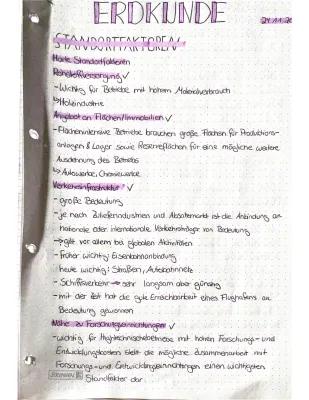 ERDKUNDE
24.11.20
STANDORTFAKTOREN
Harte Standortfaktoren
Rohstoffversorgung ✓
- Wichtig für Betriebe mit hohem Materialverbrauch
↳ Holzindustrie
Angebot an Flächen/Immobilien ✓
- Flächenintensive Betriebe brauchen große Flächen für Produktions-
anlagen & Lager sowie Reserveflächen für eine mögliche weitere
Ausdehnung des Betriebs
↳ Autowerke, Chemiewerke
Verkehrsinfrastruktur ✓
- große Bedeutung
- je nach Zulieferindustrien und Absatzmarkt ist die Anbindung an
nationale oder internationale Verkehrsträger von Bedeutung
→ gilt vor allem bei globalen Aktivitäten
- früher wichtig: Eisenbahnanbindung
heute wichtig: Straßen, Autobahnnetz
- Schiffsverkehr → sehr langsam aber günstig
- mit der Zeit hat die gute Erreichbarkeit eines Flughafens an
Bedeutung gewonnen
Nähe zu Forschungseinrichtungen ✓
- wichtig für Hightechnischebetriebe mit hohen Forschungs- und
Entwicklungskosten stellt die mögliche Zusammenarbeit mit
Forschungs- und Entwicklungseinrichtungen einen wichtigen
Standfaktor dar.